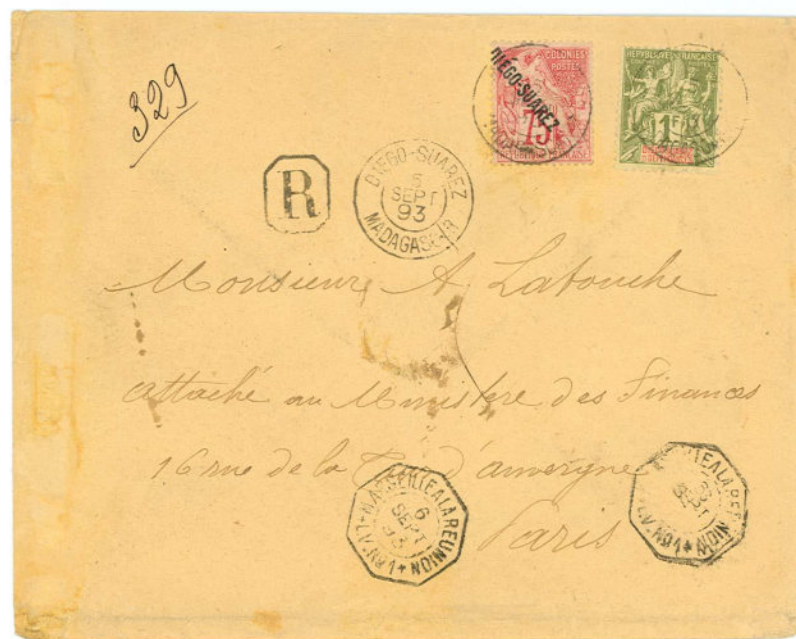 329
COLONIES
POSTES
DIÉGO-SUAREZ
75
RÉPUBLIQUE FRANÇAISE
RÉPUBLIQUE FRANÇAISE
1F
R
DIEGO-SUAREZ
5
SEPT
93
MADAGASCAR
Monsieur A Latouche
attaché au Ministère des Finances
16 rue de la d'auvergne
Paris
MARSEILLE A LA REUNION
6
SEPT
93
L.V. Nº1